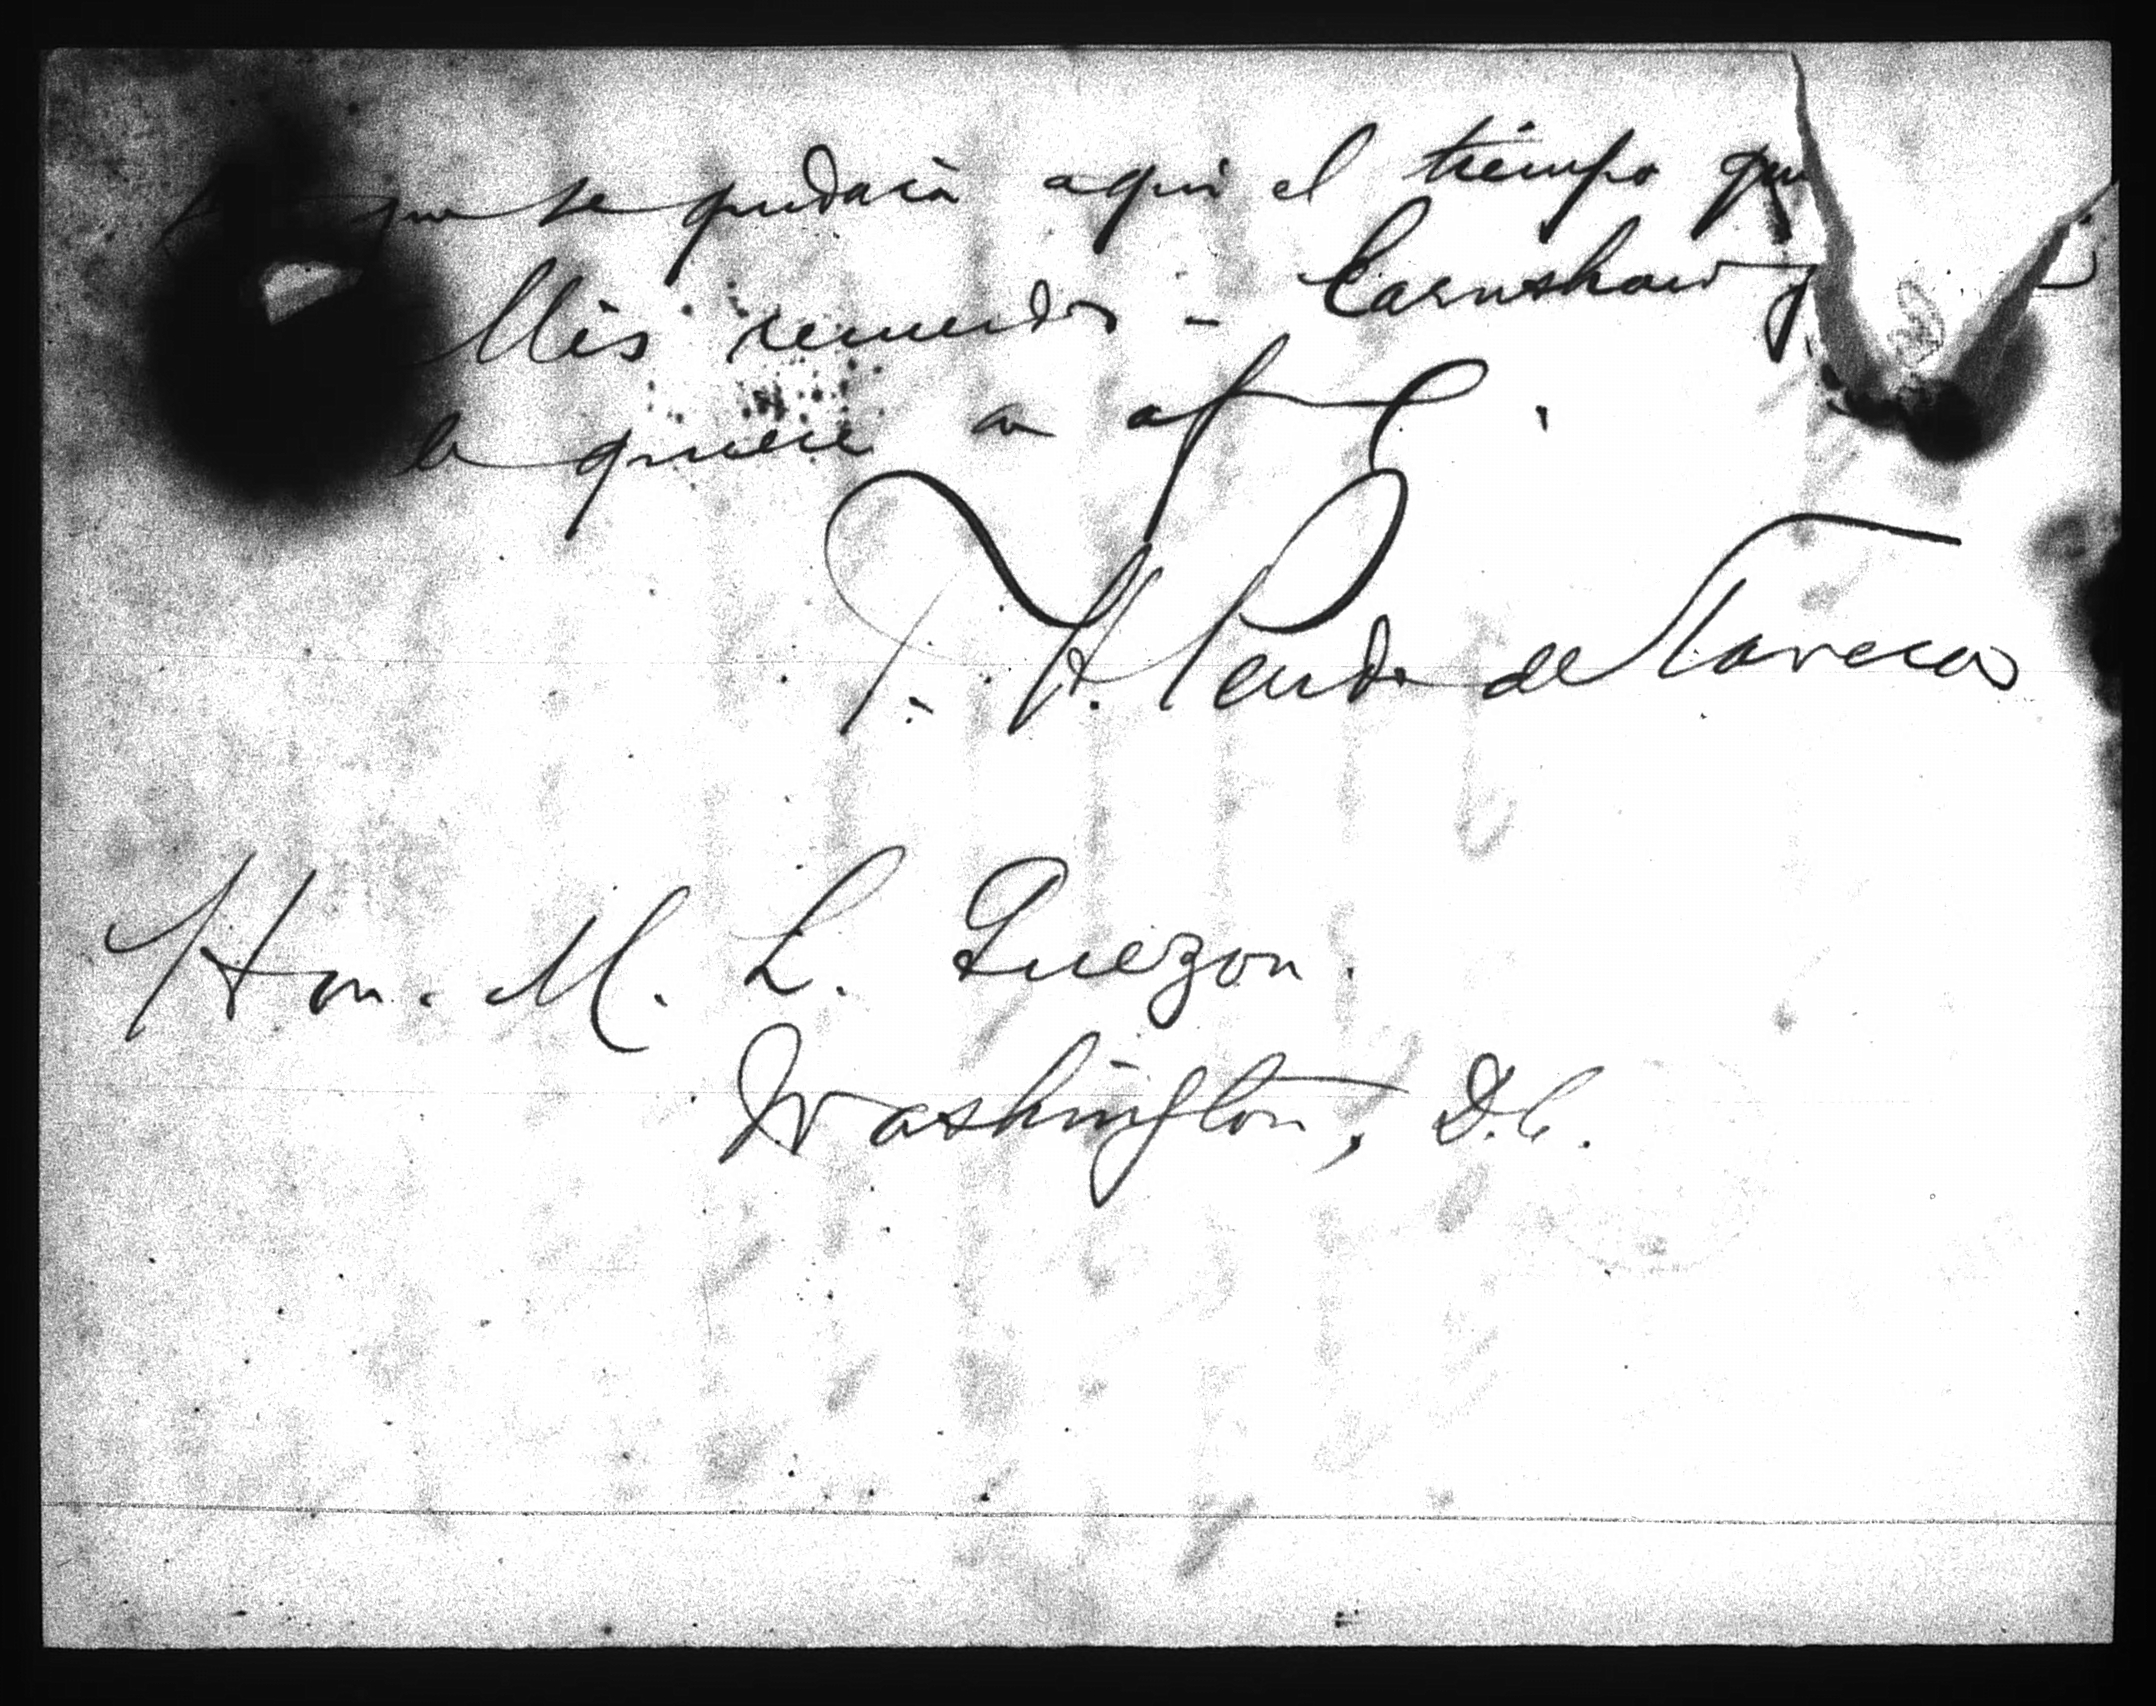 que se quedará aquí el tiempo que
Mis recuerdos a Earnshaw y
le quiere su af
T. H. Pardo de Tavera
Hon. M. L. Quezon.
Washington, D.C.